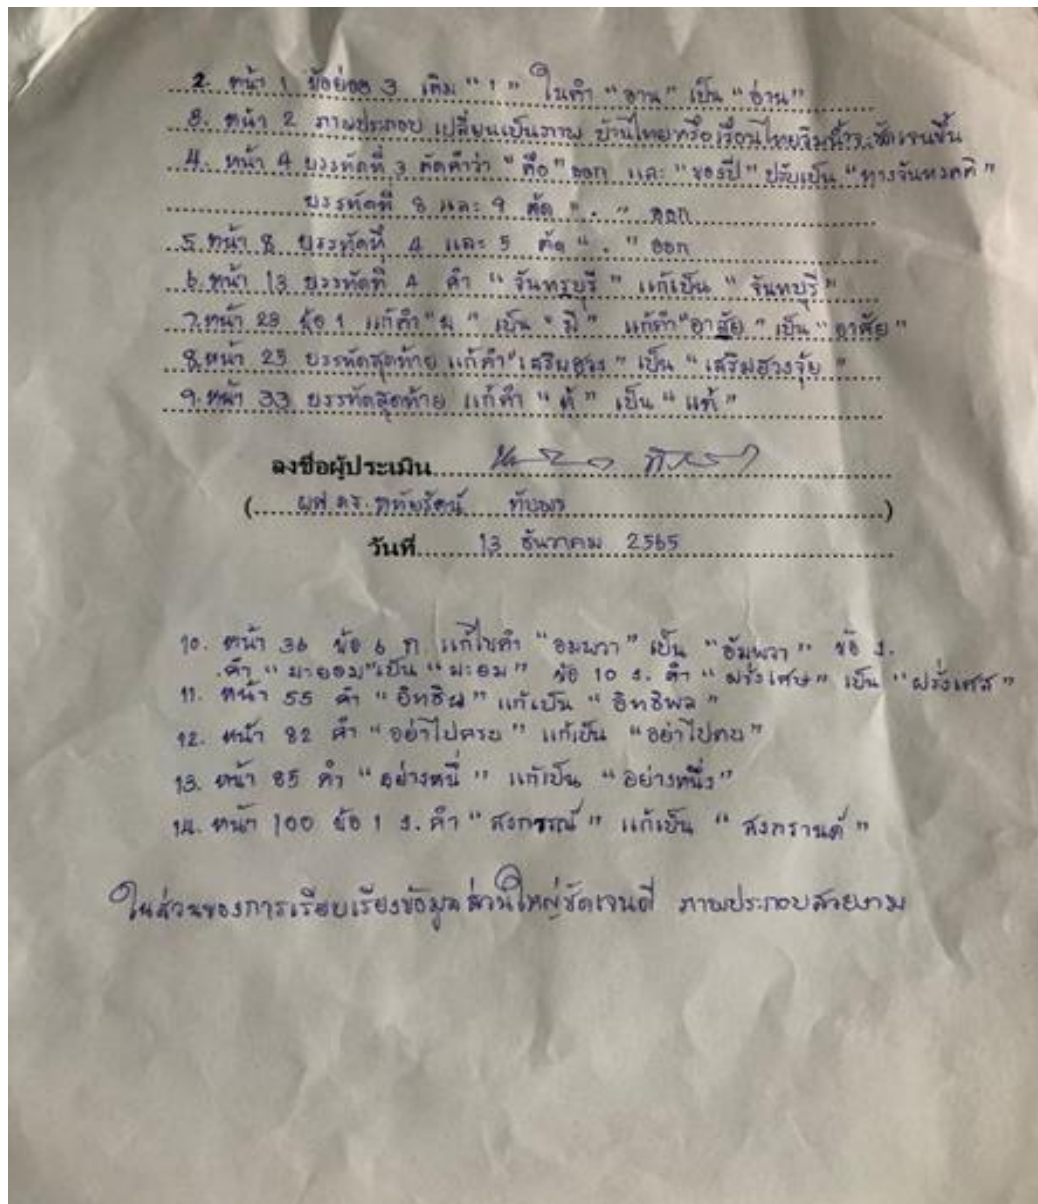 2. หน้า 1 ข้อย่อย 3 เติม " ่ " ในคำ "อาน" เป็น "อ่าน"
3. หน้า 2 ภาพประกอบ เปลี่ยนเป็นภาพ บ้านไทยหรือเรือนไทยริมน้ำ ชัดเจนขึ้น
4. หน้า 4 บรรทัดที่ 3 ตัดคำว่า "คือ" ออก และ "ของปี" ปรับเป็น "ทางจันทรคติ"
บรรทัดที่ 8 และ 9 ตัด " . " ออก
5. หน้า 8 บรรทัดที่ 4 และ 5 ตัด " . " ออก
6. หน้า 13 บรรทัดที่ 4 คำ "จันทรบุรี" แก้เป็น "จันทบุรี"
7. หน้า 23 ข้อ 1 แก้คำ "ม" เป็น "มี" แก้คำ "อาสัย" เป็น "อาศัย"
8. หน้า 25 บรรทัดสุดท้าย แก้คำ "เสริมฮวง" เป็น "เสริมฮวงจุ้ย"
9. หน้า 33 บรรทัดสุดท้าย แก้คำ "ท้" เป็น "แท้"
ลงชื่อผู้ประเมิน
(ผศ.ดร.หทัยรัตน์ ทับพร)
วันที่ 13 ธันวาคม 2565
10. หน้า 36 ข้อ 6 ก แก้ไขคำ "อมพวา" เป็น "อัมพวา" ข้อ ง.
คำ "มะยอม" เป็น "มะยม" ข้อ 10 ง. คำ "ฝรั่งเศษ" เป็น "ฝรั่งเศส"
11. หน้า 55 คำ "อิทธิผ" แก้เป็น "อิทธิพล"
12. หน้า 82 คำ "อย่าไปครบ" แก้เป็น "อย่าไปคบ"
13. หน้า 85 คำ "อย่างหนึ่" แก้เป็น "อย่างหนึ่ง"
14. หน้า 100 ข้อ 1 ง. คำ "สงกรรณ์" แก้เป็น "สงกรานต์"
ในส่วนของการเรียบเรียงข้อมูลส่วนใหญ่ชัดเจนดี ภาพประกอบสวยงาม